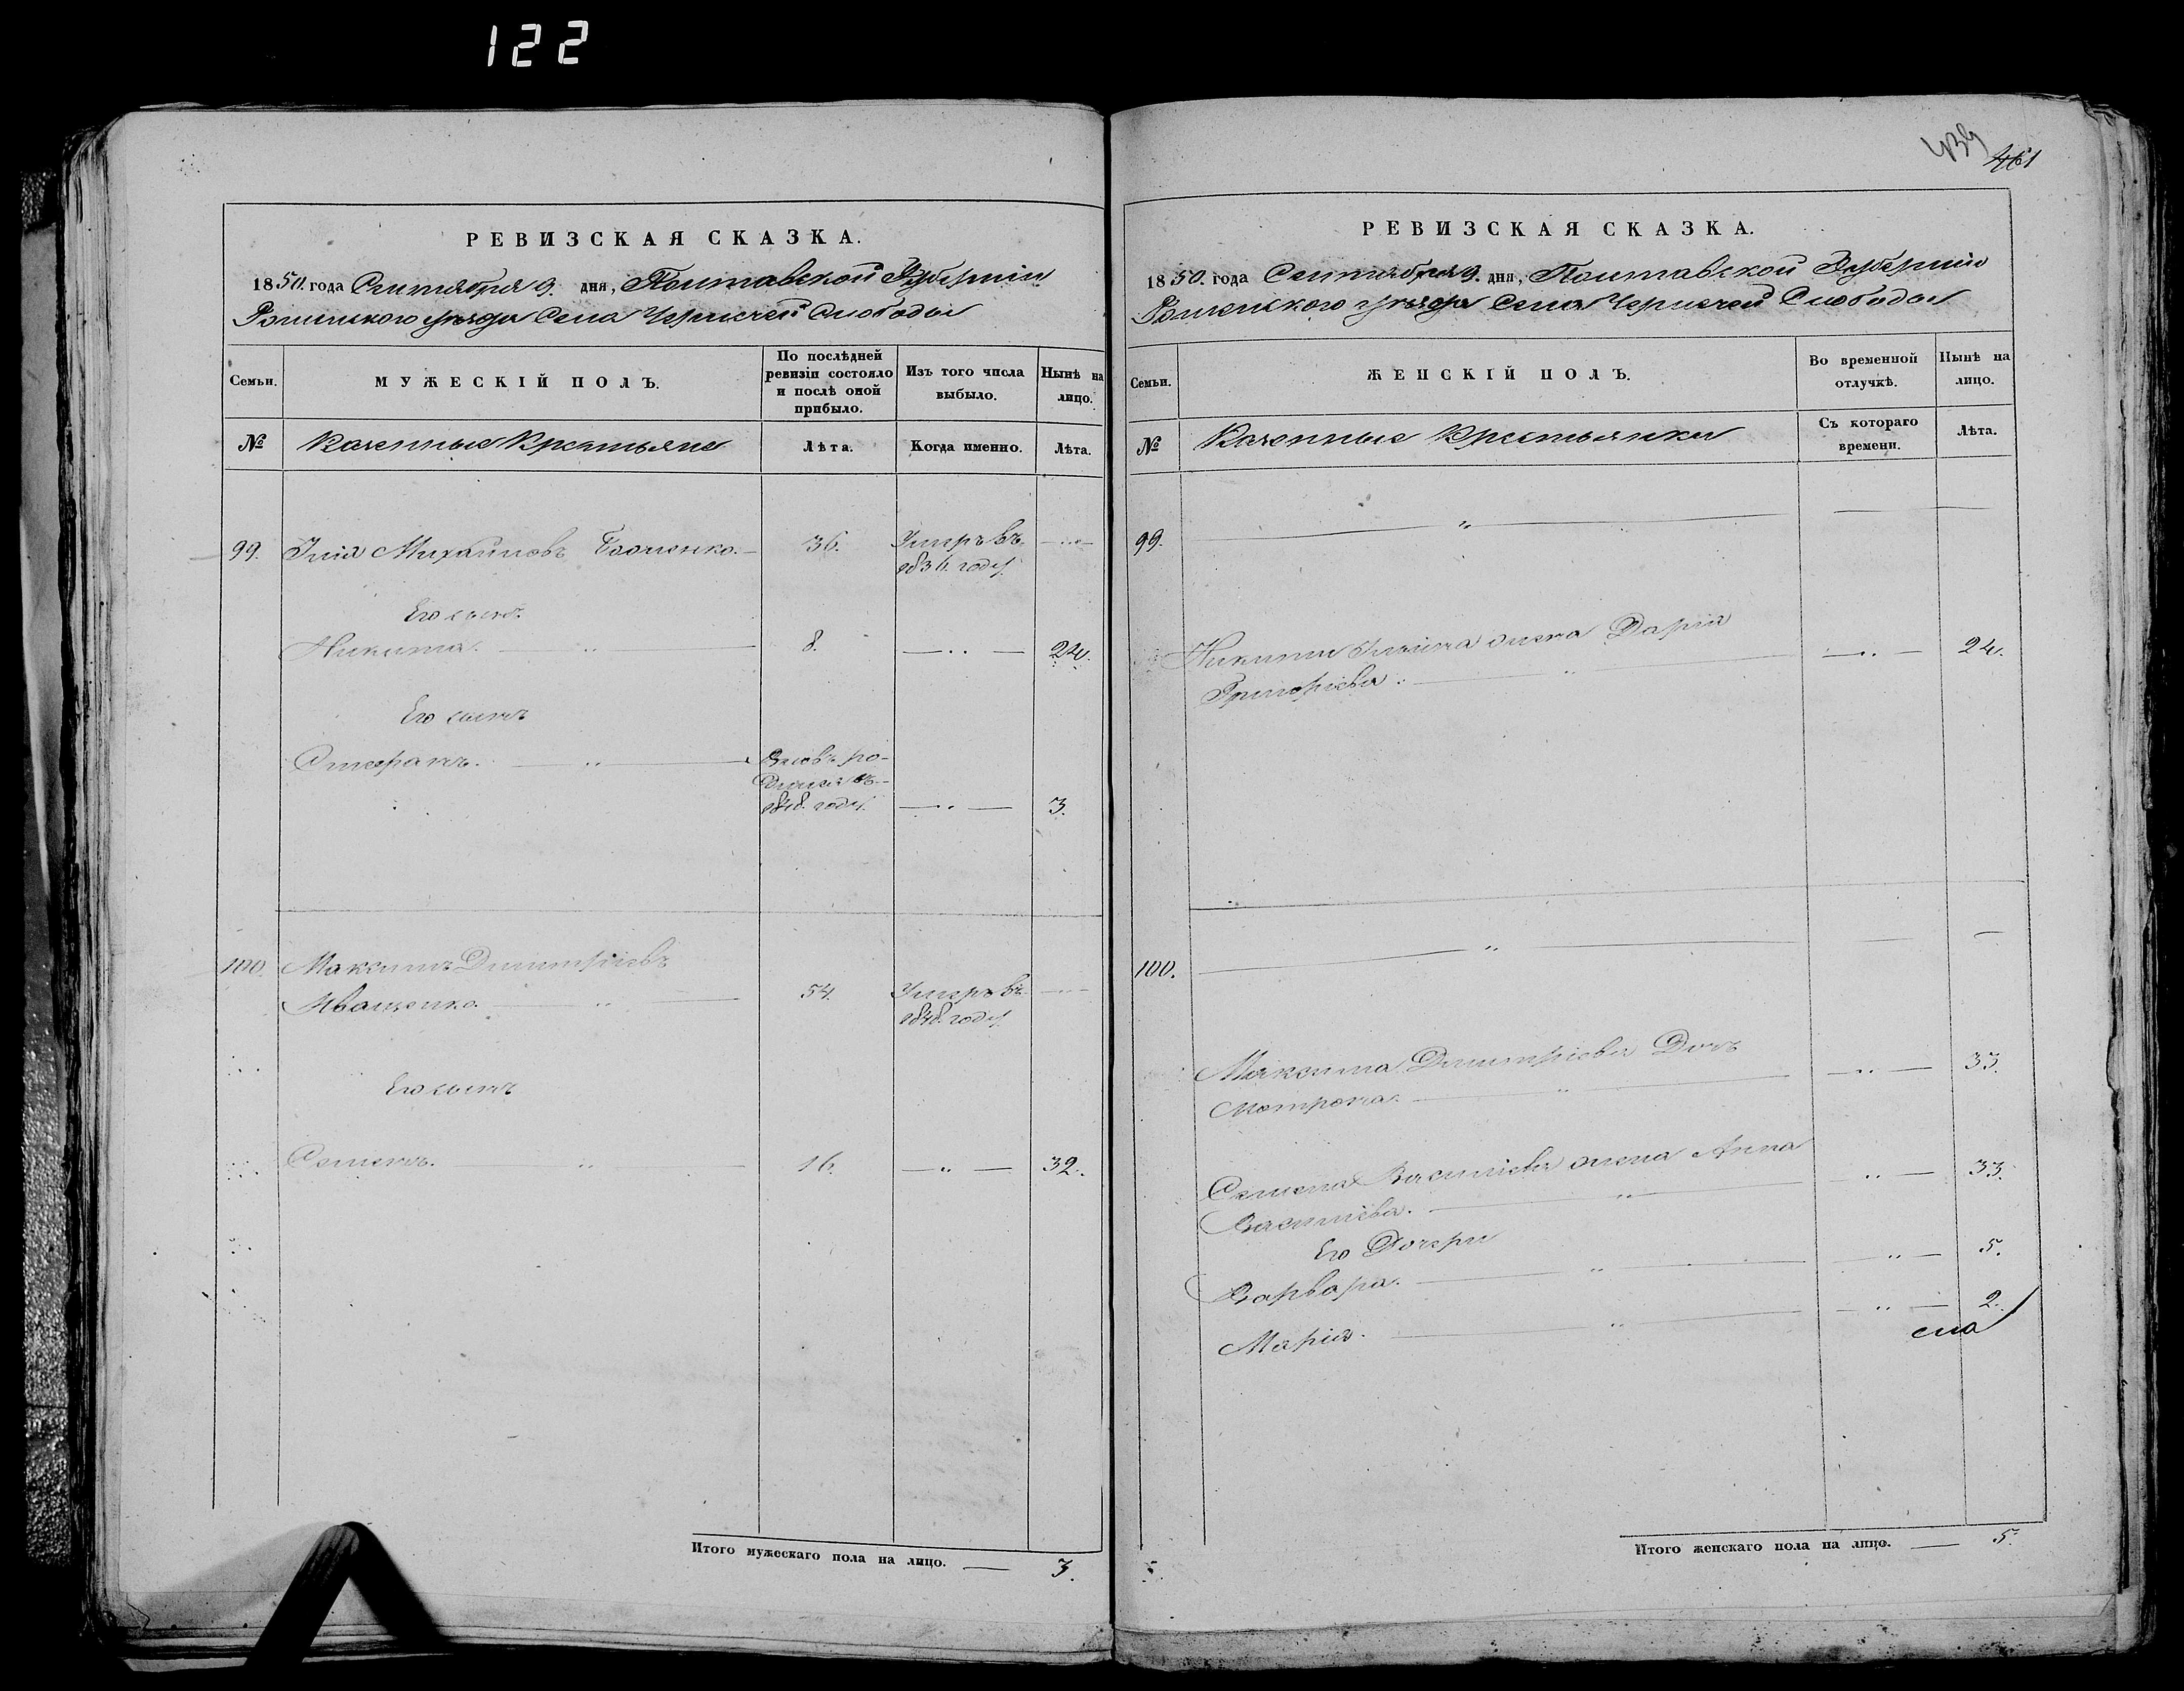 122
РЕВИЗСКАЯ СКАЗКА.
1850. года Сентября 9. дня, Полтавской Губерніи
Роменского уезда Села Чернечей Слободы
Семьи.
МУЖЕСКІЙ ПОЛЪ.
По послѣдней ревизіи состояло и послѣ оной прибыло.
Изъ того числа выбыло.
Нынѣ на лицо.
№
Казенные Крестьяне
Лѣта.
Когда именно.
Лѣта.
99. Илія Михайловъ 36. Умеръ въ
1836. году
Его сынъ
Никита. 8. 24.
Его сынъ
Вновь ро-
дился въ
1848. году. 3.
100. Максимъ Димитріевъ
Иващенко. 54. Умеръ въ
1848. году
Его сынъ
Семенъ. 16. 32.
Итого мужескаго пола на лицо. — 3.
439
461
РЕВИЗСКАЯ СКАЗКА.
1850. года Сентября 9. дня, Полтавской Губерніи
Роменского уезда Села Чернечей Слободы
Семьи.
ЖЕНСКІЙ ПОЛЪ.
Во временной отлучкѣ.
Нынѣ на лицо.
№
Казенные Крестьянки
Съ котораго времени.
Лѣта.
99.
Никиты Ильина жена Дарія
Григоріева. 24.
100.
Максима Димитріева Дочь
Мотрона. 33.
Семена Василіева жена Анна
Василіева. 33.
Его Дочери
Варвара. 5.
Марія. 2.
Итого женскаго пола на лицо. — 5.